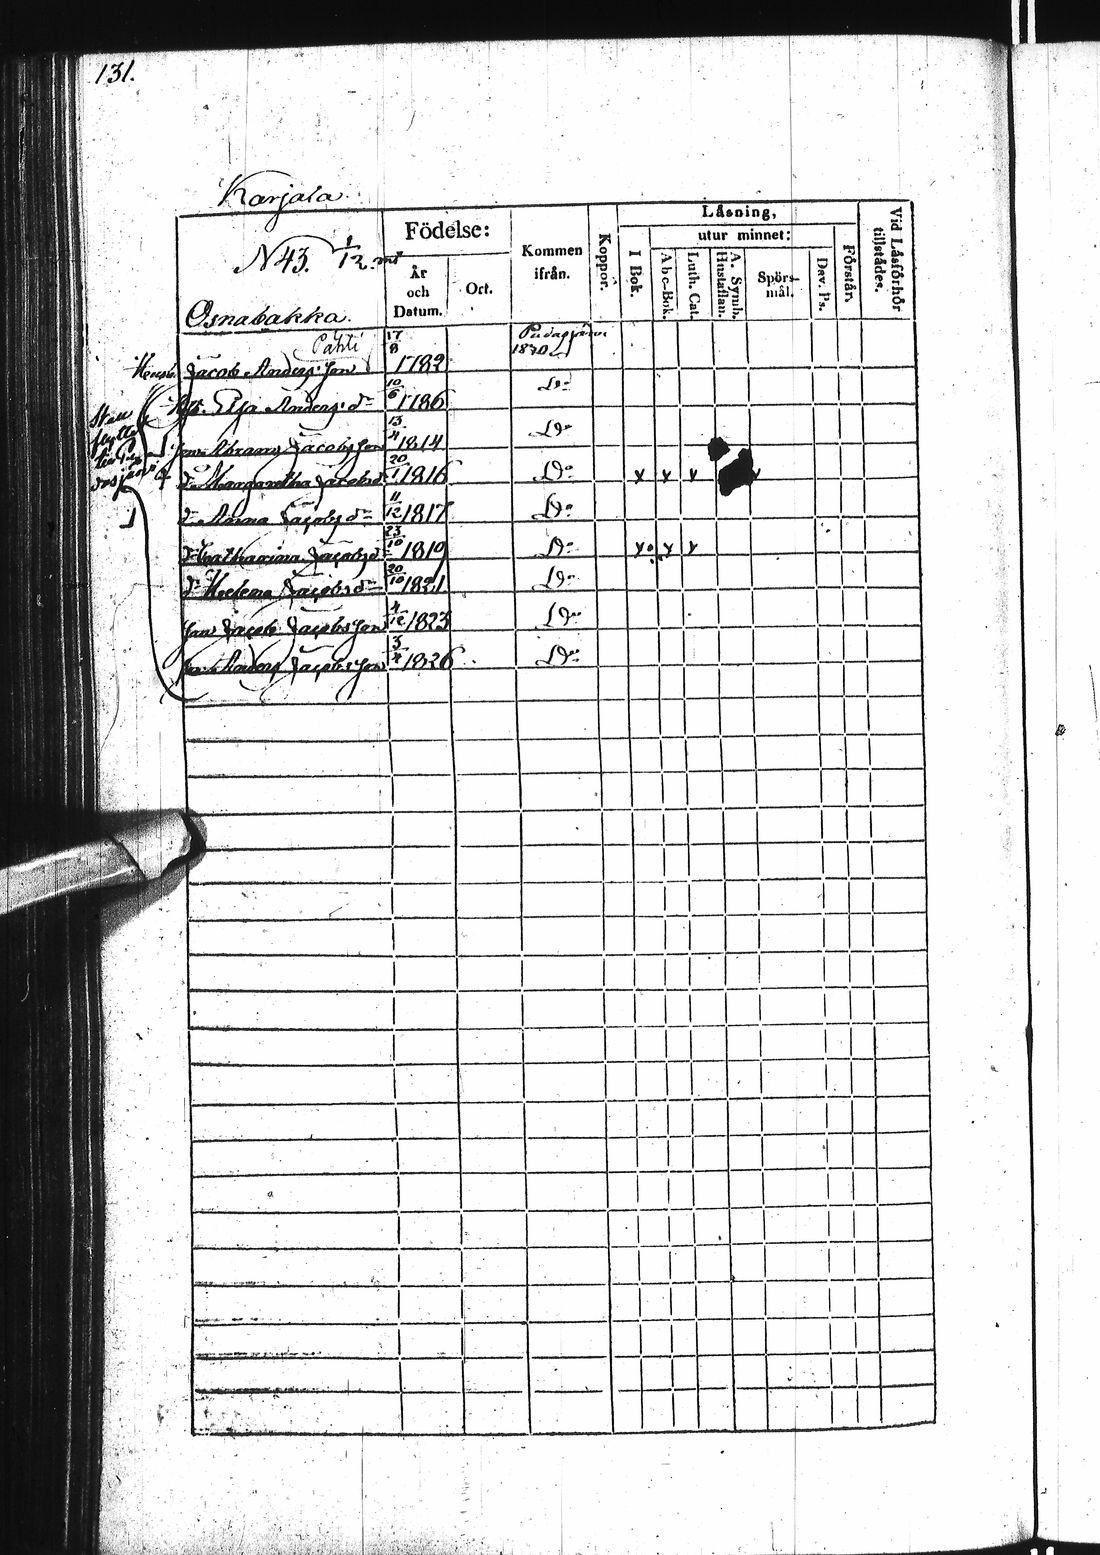 131.
Karjala
N 43. 1/12 mt
Osnabakka
Födelse:
År och Datum.
Ort.
Kommen ifrån.
Koppor.
Låsning,
I Bok.
utur minnet:
Abc-Bok.
Luth. Cat.
A. Symb. Hustaflan.
Spörs-mål.
Dav. Ps.
Förstår.
Vid Låsförhör tillstådes.
Pahti
Jacob Anders Son 17/8 1782 Pudasjärvi 1830
Anders dr 10/6 1786 Do
Son Abram Jacobs Son 13/4 1814 Do
dr Margaretha Jacobsd 20/1 1816 Do
dr Anna Jacobs dr 11/12 1817 Do
dr Catharina Jacobs d 23/10 1819 Do
dr Helena Jacobs dr 20/10 1821 Do
Son Jacob Jacobs Son 4/12 1823 Do
Son Anders Jacobs Son 3/4 1826 Do